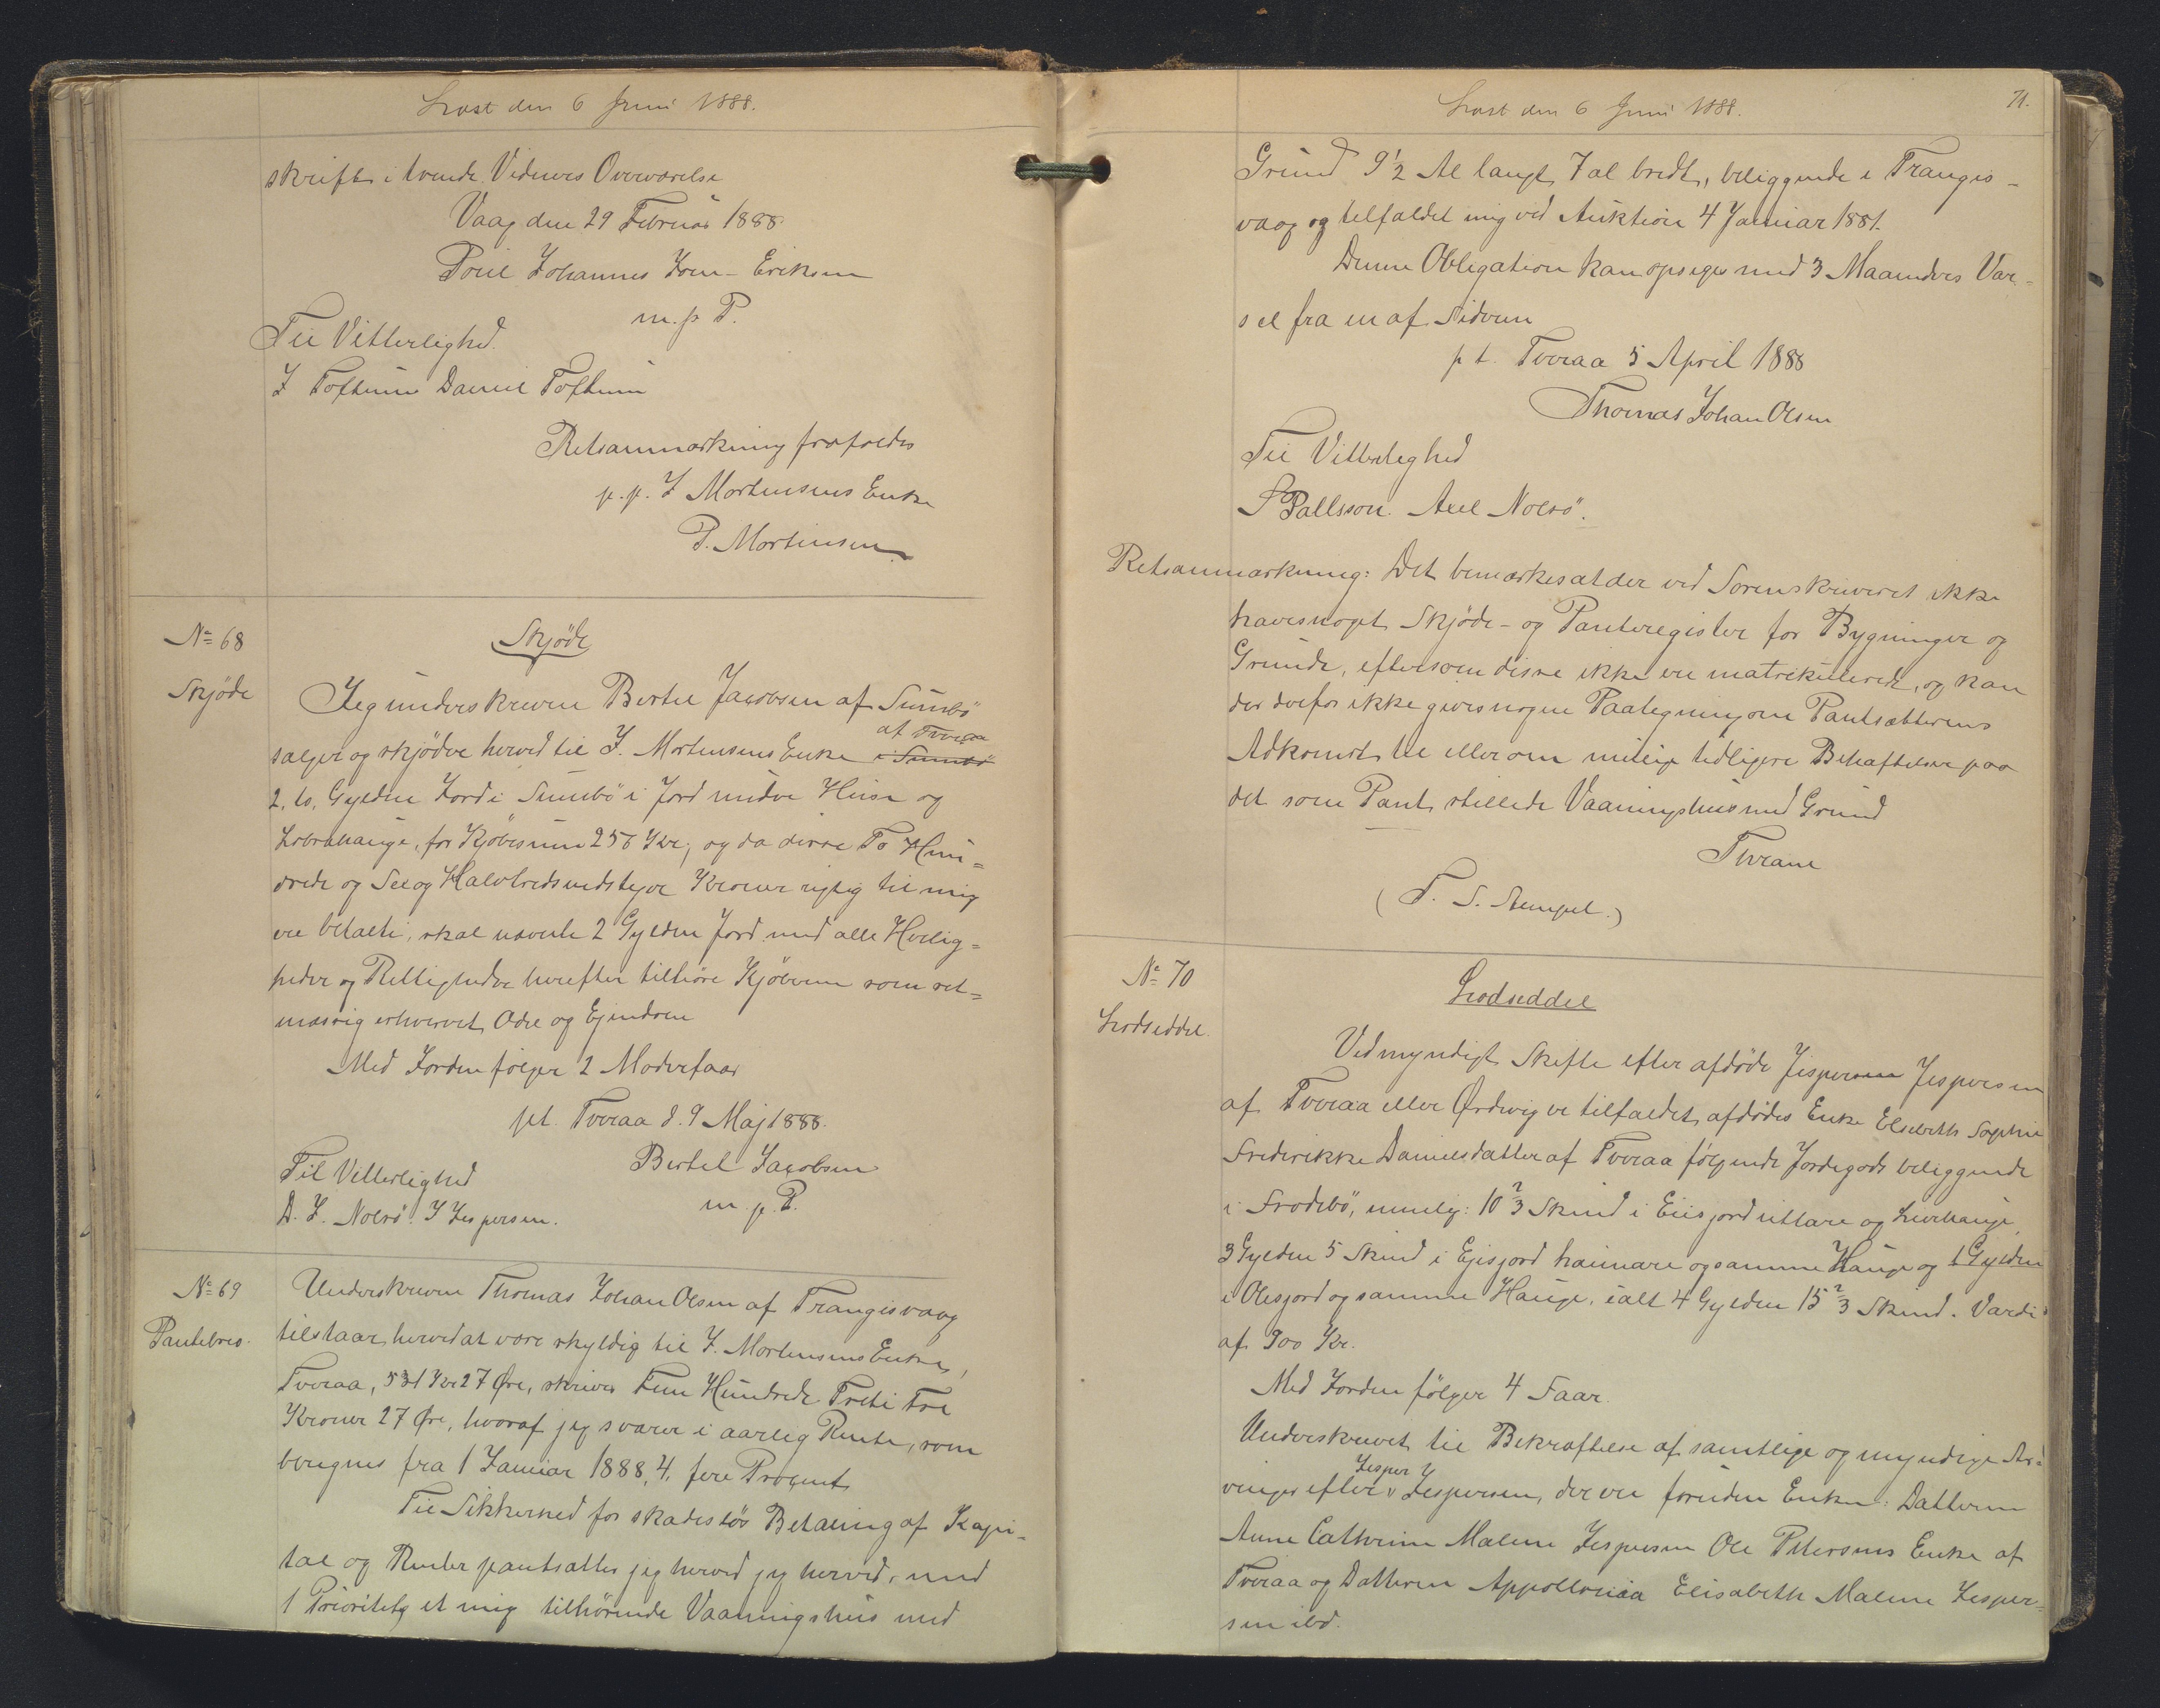 Læst den 6 Juni 1888.
skrift i tvende Vidners Overværelse
Vaag den 29 Februar 1888.
Poul Johannes Joen-Eriksen
m. p. P.
Til Vitterlighed.
J Poftuime Daniel Toftum
Retsanmærkning frafaldes
p. p. J Mortensens Enke
P. Mortensen
No 68
Skjøde
Skjøde
Jeg underskreven Bertel Jacobsen af Sumbö
af Tveraa
sælger og skjøder herved til J. Mortensens Enke i Sumbö
2, to, Gylden Jord i Sumbö i Jord nidre Huse og
hauge, for Kjøbesum 256 Kr; og da disse To Hun=
drede og Sex og Halvtredsindstyve Kroner rigtig til mig
ere betalte, skal nævnte 2 Gylden Jord med alle Herlig=
heder og Rettigheder herefter tilhøre Kjøberen som ret=
mæssig erhvervet Odel og Ejendom
Med Jorden følger 2 Moderfaar
pt. Tveraa d. 9 Maj 1888.
Til Vitterlighed
Bertel Jacobsen
D. J. Nolsö. J Jespersen.
m. p. P.
No 69
Pantebrev.
Underskreven Thomas Johan Olsen af Trangisvaag
tilstaar herved at være skyldig til J. Mortensens Enke,
Tveraa, 531 Kr 27 Øre, skriver Fem Hundrede Treti Tre
Kroner 27 Øre, hvoraf jeg svarer i aarlig Rente, som
beregnes fra 1 Januar 1888, 4, fire Procent
Til Sikkerhed for skadesløs Betaling af Kapi-
tal og Renter pantsætter jeg herved jeg herved, med
1 Prioritet, et mig tilhørende Vaaningshus med
Læst den 6 Juni 1888.
71.
Grund 9 1/2 Al langt, 7 al bredt, beliggende i Trangis-
vaag og tilfaldet mig ved Auktion 4 Januar 1881.
Denne Obligation kan opsiges med 3 Maaneders Var-
sel fra en af Siderne
p t. Tveraa 5 April 1888
Thomas Johan Olsen
Til Vitterlighed
S Pallsson. Axel Nolsö.
Retsanmærkning: Det bemærkes at der ved Sorenskriveriet ikke
haves noget Skjöde- og Panteregister for Bygninger og
Grunde, eftersom disse ikke ere matrikulerede, og kan
der derfor ikke gives nogen Paategning om Pantsætterens
Adkomst til eller om mulig tidligere Behæftelser paa
det som Pant stillede Vaaningshus med Grund
(T. S. Stempel.)
No 70
Lodseddel.
Lodseddel
Ved myndigt Skifte efter afdøde Jespersen Jespersen
af Tveraa eller Ørdevig er tilfaldet afdødes Enke Elsebeth Sophie
Frederikke Danielsdatter af Tveraa følgende Jordegods beliggende
i Frodebö, nemlig: 10 2/3 Skind i Eiisjord uttare og hauge,
3 Gylden 5 Skind i Ejisjord haimare og samme Hauge og 1 Gylden
i Olesjord og samme Hauge, ialt 4 Gylden 15 2/3 Skind. Værdi
af 900 Kr.
Med Jorden følger 4 Faar.
Underskrevet til Bekræftelse af samtlige og myndige Ar=
Jesper
vinger efter Jespersen, der ere foruden Enken: Datteren
Anne Cathrine Malene Jespersen Ole Petersens Enke af
Tveraa og Datteren Appollonia Elisabeth Malene Jesper=
sen ibd.